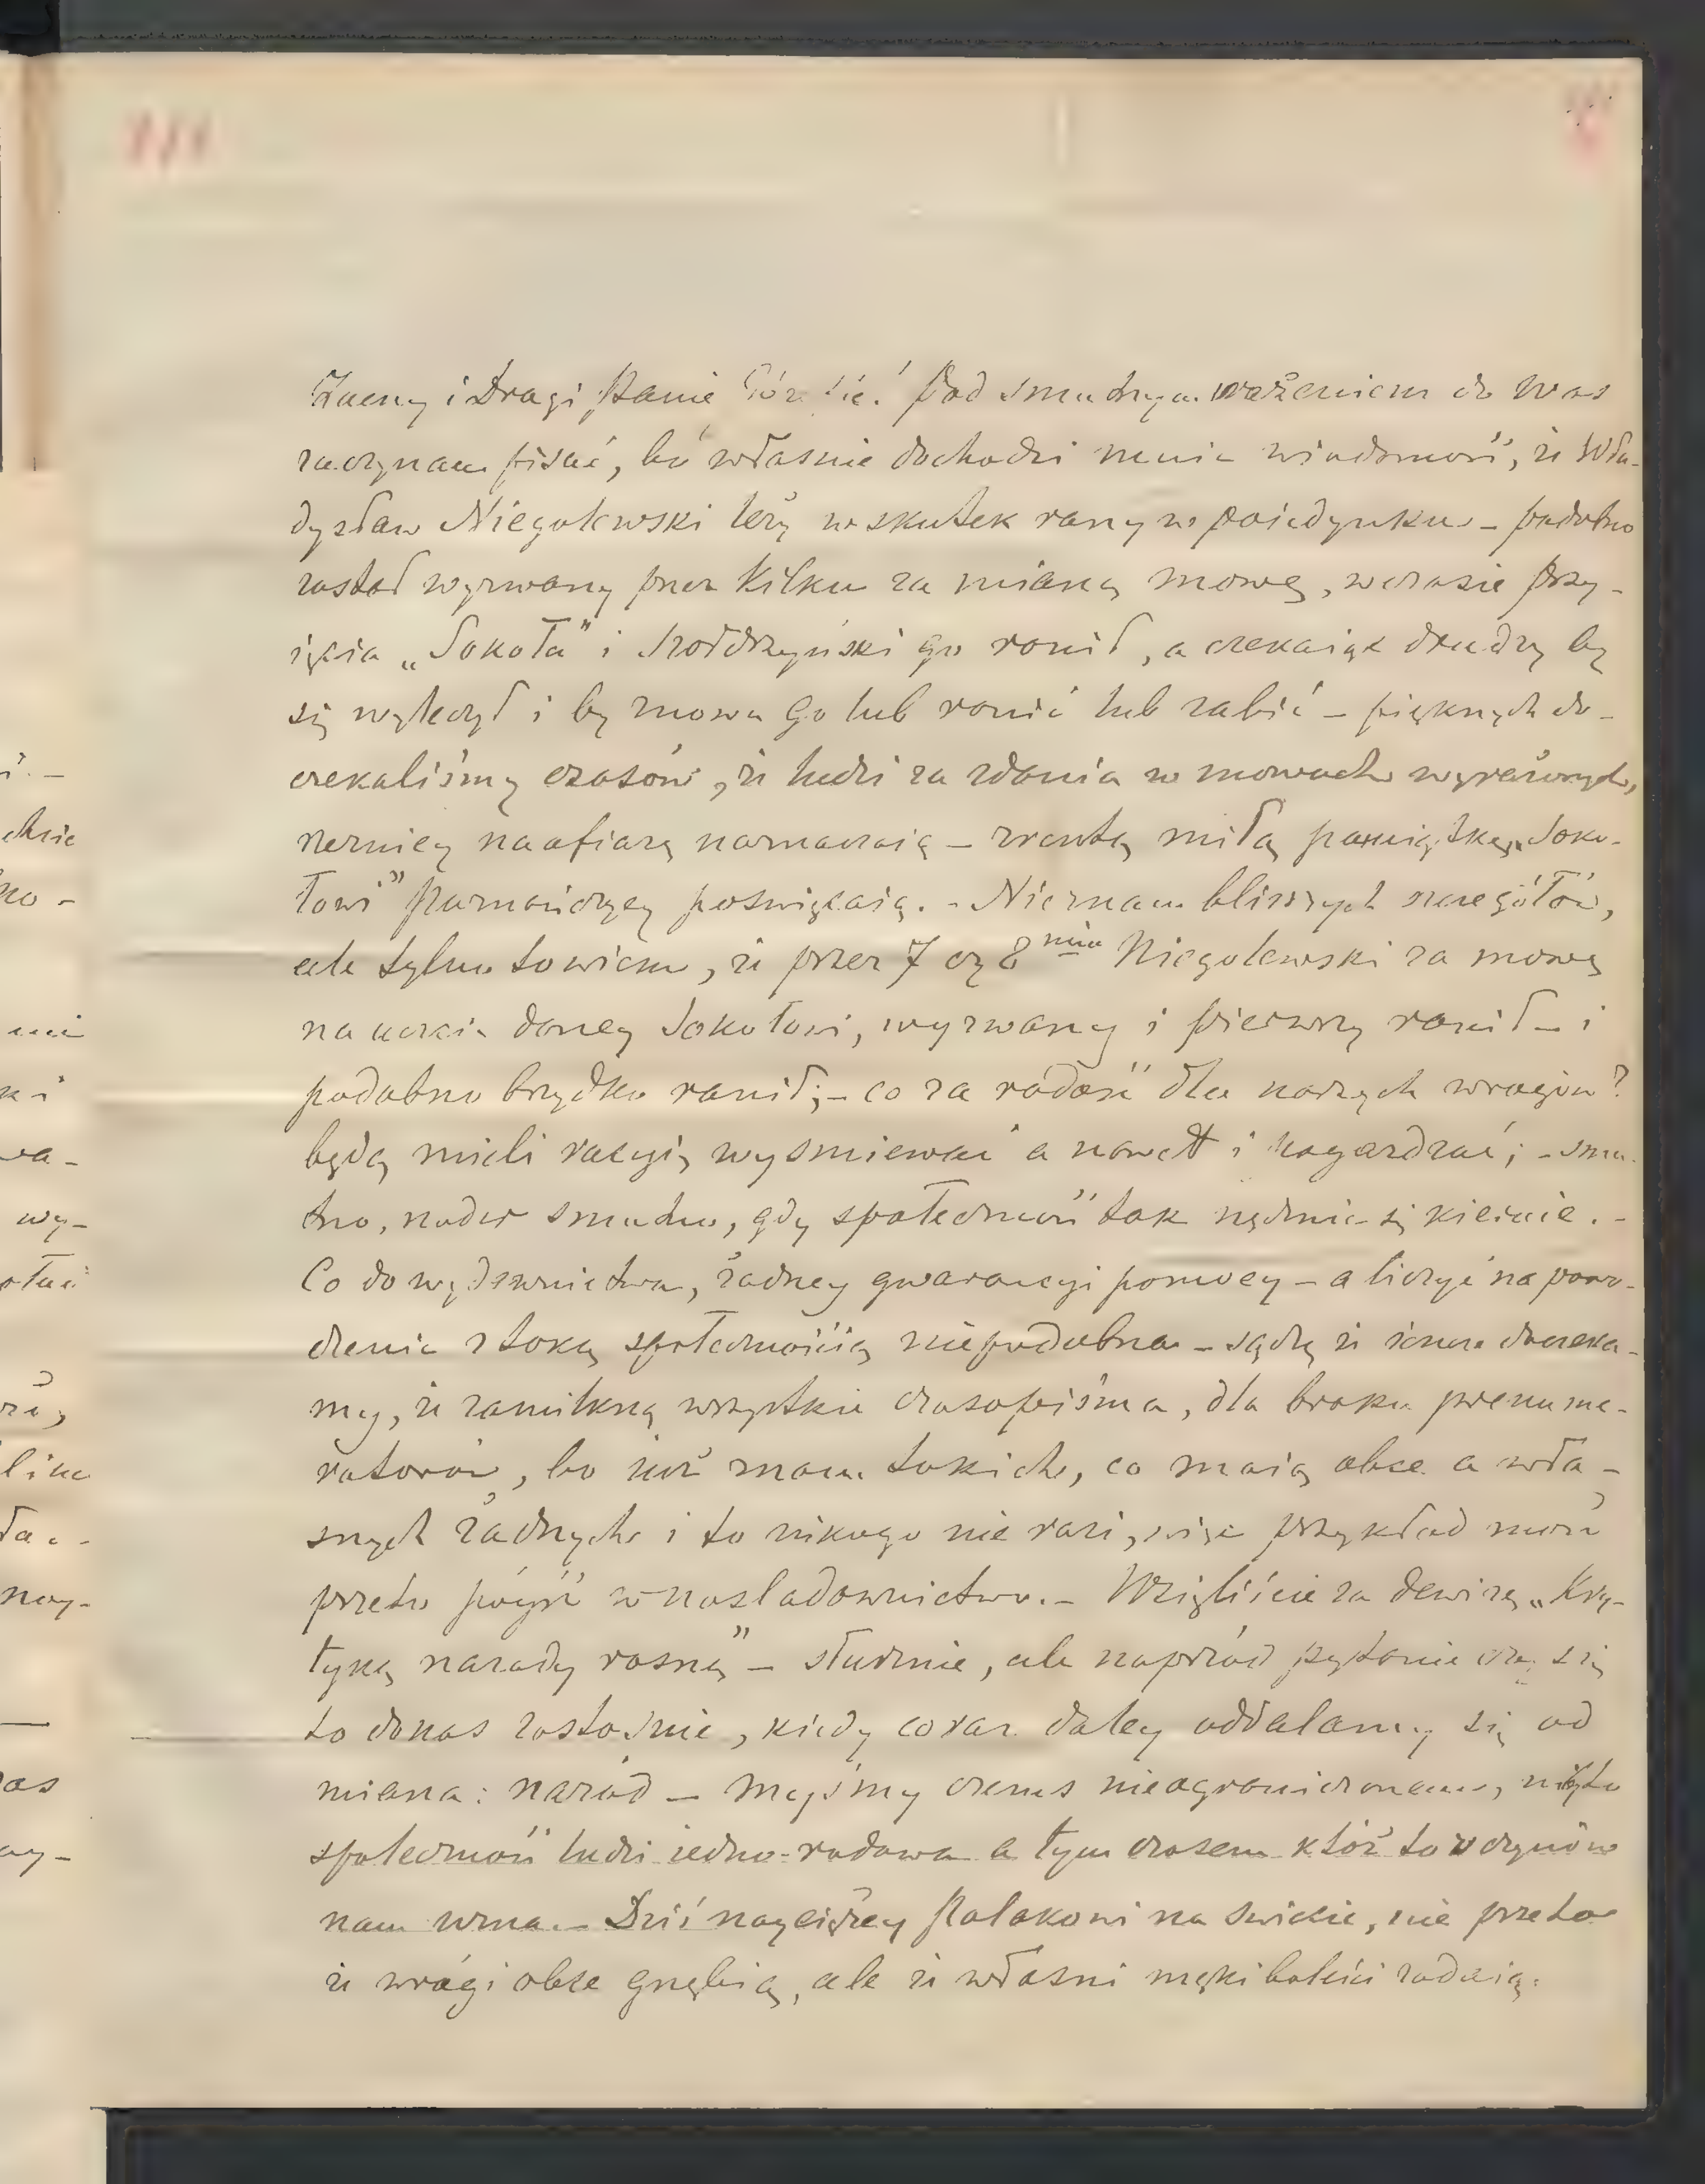 Zacny i Drogi Panie! Pod smutnym wrażeniem do Was
zaczynam pisać, bo własnie dochodzi mnie wiadomość, iż Wła-
dysław Niegolewski leży w skutek rany w poiedynku - podobno
został wyzwany przez kilku za mianą mowę, w czasie przy-
ięcia „Sokoła" i go ranił, a czekaiąc drudzy by
się wyleczył i by znowu go lub ranić lub zabić - pięknych do-
czekaliśmy czasów, iż ludzi za zdania w mowach wyrażonych,
na ofiarę naznaczaią - zresztą miłą pamiątkę „Soko-
łowi" Poznańczycy poswięcaią. - Nieznam bliższych szczegółów,
ale tylko to wiem, iż przez 7 czy 8miu Niegolewski za mowę
na uczcie daney Sokołowi, wyzwany i pierwszy ranił - i
podobno brzydko ranił; - co za radość dla naszych wrogów?
będą mieli racyią wysmiewać a nawet i pogardzać; - smu-
tno, nader smutno, gdy społeczność tak nędznie się kieruie. -
Co do wydawnictwa, żadney gwarancyi pomocy - a liczyć na powo-
dzenie z taką społecznością niepodobna - sądzę iż doczeka-
my, iż zamilkną wszystkie czasopisma, dla braku prenume-
ratorów, bo iuż znam takich, co maią obce a wła-
snych żadnych i to nikogo nie razi, więc przykład może
przeto póyść w nasladownictwo. - Wzięliście za dewizę „Kry-
tyką narody rosną" - słusznie, ale naprzód pytanie czy się
to do nas zastosuie, kiedy coraz daley oddalamy się od
miana: naród - Myśmy czemś nieograniczonem, niby to
społeczność ludzi iedno-rodowa a tym czasem któż to w czynów
nam uzna. - Dziś nayciężey Polakowi na swiecie, nie przeto
iż wrogi obce gnębią, ale iż własni męki boleści zadaią.